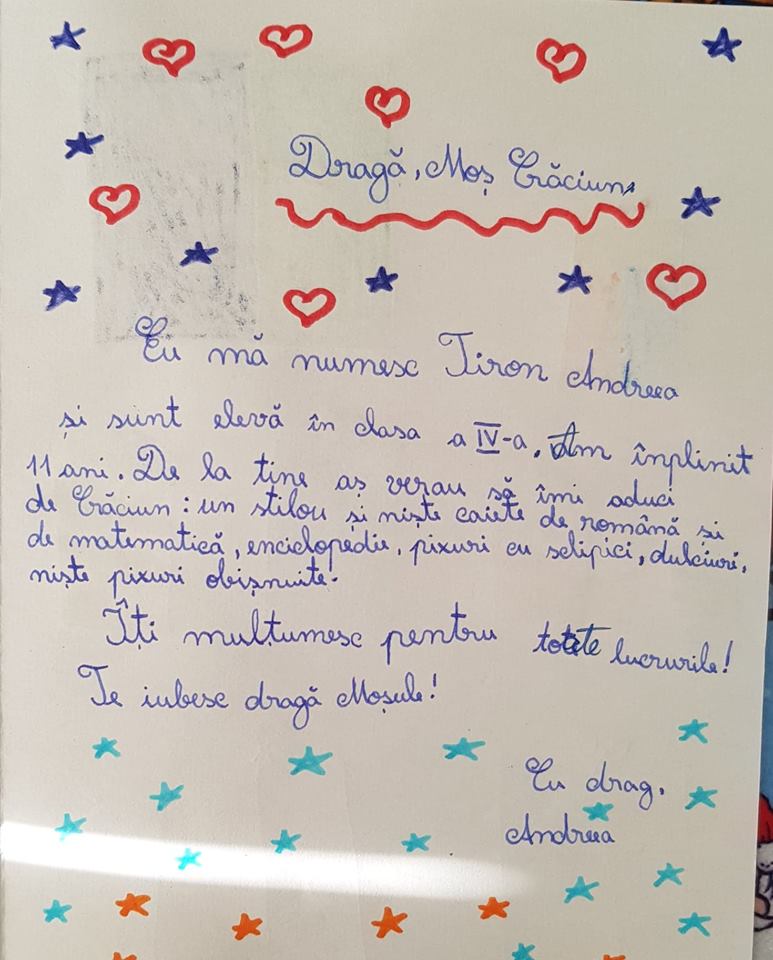 Dragă, Moș Crăciun,
Eu mă numesc Tiron Andreea
și sunt elevă în clasa a IV-a. Am împlinit
11 ani. De la tine aș verau să îmi aduci
de Crăciun: un stilou și niște caiete de română si
de matematică, enciclopedie, pixuri cu sclipici, dulciuri,
niște pixuri obișnuite.
Îți mulțumesc pentru toate lucrurile!
Te iubesc dragă Moșule!
Cu drag,
Andreea